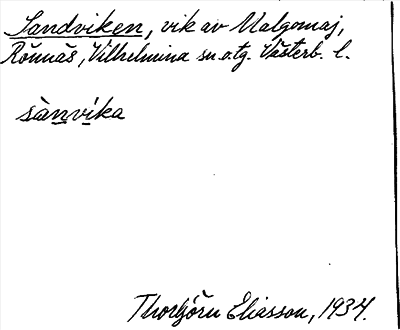 Sandviken, vik av Malgomaj,
Rönnäs, Vilhelmina sn o. tg. Västerb. l.
sànvíka
Thorbjörn Eliasson, 1934.